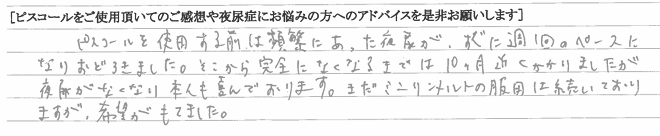 [ピスコールをご使用頂いてのご感想や夜尿症にお悩みの方へのアドバイスを是非お願いします]
ピスコールを使用する前は頻繁にあった夜尿が、すぐに週1回のペースに
なりおどろきました。そこから完全になくなるまでは10ヶ月近くかかりましたが
夜尿がなくなり本人も喜んでおります。まだミニリンメルトの服用は続いており
ますが、希望がもてました。